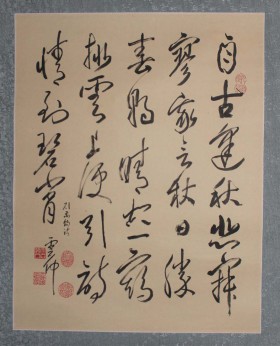 自古逢秋悲寂
寥我言秋日勝
春朝晴空一鶴
排雲上便引詩
情到碧霄
劉禹錫詩
雲帅